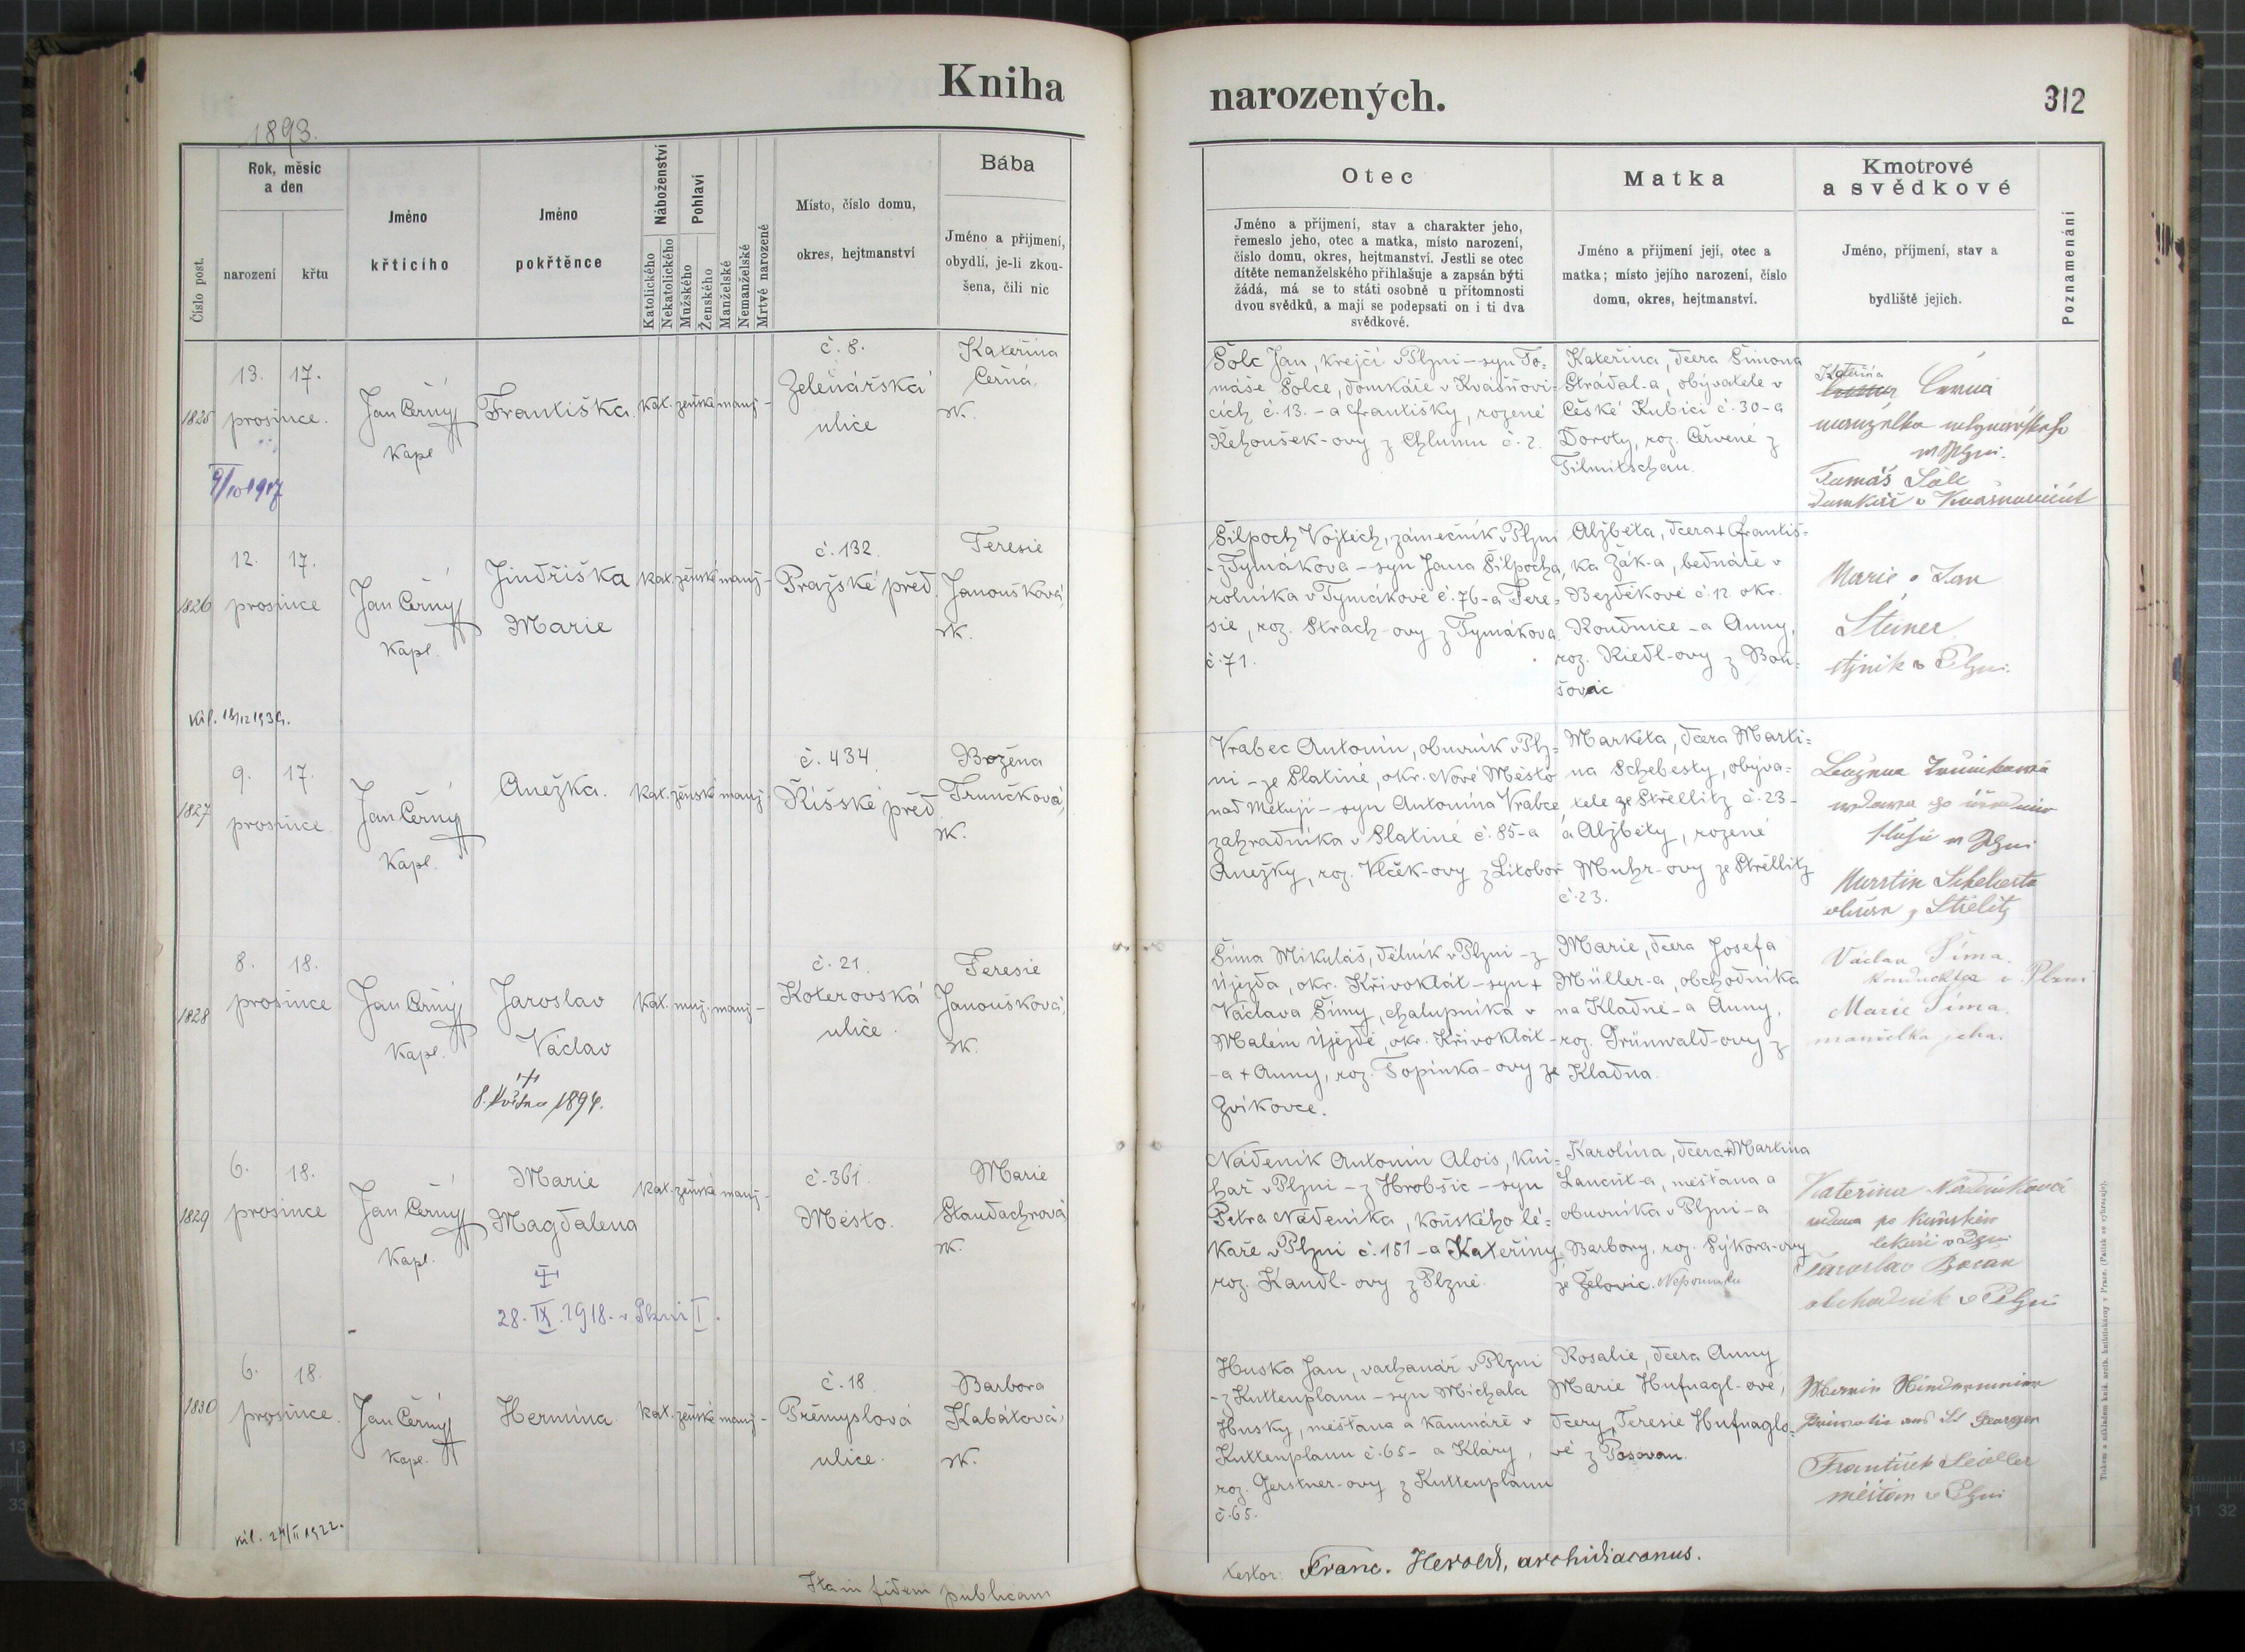 Kniha
1893.
Číslo post.
Rok, měsíc
a den
narození
křtu
Jméno
křticího
Jméno
pokřtěnce
Náboženství
Katolického
Nekatolického
Pohlaví
Mužského
Ženského
Manželské
Nemanželské
Mrtvě narozené
Místo, číslo domu,
okres, hejtmanství
Bába
Jméno a příjmení,
obydlí, je-li zkou-
šena, čili nic
1825
13. 17.
prosince.
9/10 1917
Jan Černý
Kapl
Františka.
kat. ženské manž-
č. 8.
Zelenářská
ulice
Kateřina
Černá.
zk.
1826
12. 17.
prosince
Jan Černý
Kapl.
Jindřiška
Marie
kat. ženské manž-
č. 132.
Pražské před.
Teresie
Janoušková,
zk.
1827
9. 17.
prosince
Jan Černý
Kapl.
Anežka.
kat. ženské manž-
č. 434.
Říšské před.
Božena
Trunčková,
zk.
1828
8. 18.
prosince
Jan Černý
Kapl.
Jaroslav
Václav
8. května 1894.
kat. muž. manž-
č. 21.
Koterovská
ulice.
Teresie
Janoušková,
zk.
1829
6. 18.
prosince
Jan Černý
Kapl.
Marie
Magdalena
28. IX. 1918. v Plzni I.
kat. ženské manž-
č. 361.
Město.
Marie
Staudachrová
zk.
1830
6. 18.
prosince.
Jan Černý
Kapl.
Hermina
kat. ženské manž-
č. 18.
Přemyslova
ulice.
Barbora
Kabátová,
zk.
Ita in fidem publicam
narozených.
312
Otec
Jméno a příjmení, stav a charakter jeho,
řemeslo jeho, otec a matka, místo narození,
číslo domu, okres, hejtmanství. Jestli se otec
dítěte nemanželského přihlašuje a zapsán býti
žádá, má se to státi osobně u přítomnosti
dvou svědků, a mají se podepsati on i ti dva
svědkové.
Matka
Jméno a příjmení její, otec a
matka; místo jejího narození, číslo
domu, okres, hejtmanství.
Kmotrové
a svědkové
Jméno, příjmení, stav a
bydliště jejich.
Poznamenání
Šolc Jan, krejčí v Plzni - syn To-
máše Šolce, domkáře v Kvášňovi-
cích č. 13. - a Františky, rozené
Řehoušek-ovy z Chlumu č. 2.
Kateřina, dcera Šimona
Strádal-a, obyvatele v
České Kubici č. 30 - a
Doroty, roz. Červené z
Kateřina
Černá
v Plzni.
Tomáš Šolc
Šilpoch Vojtěch, zámečník v Plzni
- z Tymákova - syn Jana Šilpocha,
rolníka v Tymákově č. 76 - a Tere-
sie, roz. Strach-ovy z Tymákova
č. 71.
Alžběta, dcera + Františ-
ka Žák-a, bednáře v
Bezděkově č. 12. okr.
Roudnice - a Anny,
roz. Riedl-ovy z Boh-
šovic
Marie a Jan
Steiner
v Plzni.
Vrabec Antonín, obuvník v Plz-
ni - ze Slatině, okr. Nové Město
nad Metují - syn Antonína Vrabce
zahradníka v Slatině č. 85 - a
Anežky, roz. Vlček-ovy z Litoboř
Markéta, dcera Marti-
na Schebesty, obyva-
tele ze Střellitz č. 23 -
a Alžběty, rozené
Muhr-ovy ze Střellitz
č. 23.
v Plzni
Šíma Mikuláš, dělník v Plzni - z
Újezda, okr. Křivoklát - syn +
Václava Šímy, chalupníka v
Malém Újezdě, okr. Křivoklát -
- a + Anny, roz. Topinka-ovy ze
Zvíkovce.
Marie, dcera Josefa
Müller-a, obchodníka
na Kladně - a Anny,
roz. Grünwald-ovy z
Kladna.
Václav Šíma.
v Plzni
Marie Šíma.
manželka jeho.
Náděník Antonín Alois, kni-
hař v Plzni - z Hrobšic - syn
Petra Náděníka, koňského lé-
kaře v Plzni č. 181 - a Kateřiny,
roz. Kandl-ovy z Plzně.
Karolína, dcera + Martina
Lancüt-a, měšťana a
obuvníka v Plzni - a
Barbory, roz. Sýkora-ovy
ze Želovic. Nepomuku
Kateřina
vdova po
Jaroslav
obchodník v Plzni
Huska Jan, varhanář v Plzni
- z Kuttenplanu - syn Michala
Husky, měšťana a kamnáře v
Kuttenplanu č. 65 - a Kláry,
roz. Gerstner-ovy z Kuttenplanu
č. 65.
Rosalie, dcera Anny
Marie Hufnagl-ové,
dcery Teresie Hufnaglo-
vé z
František
měšťan v Plzni
testor: Franc. Herold, archidiaconus.